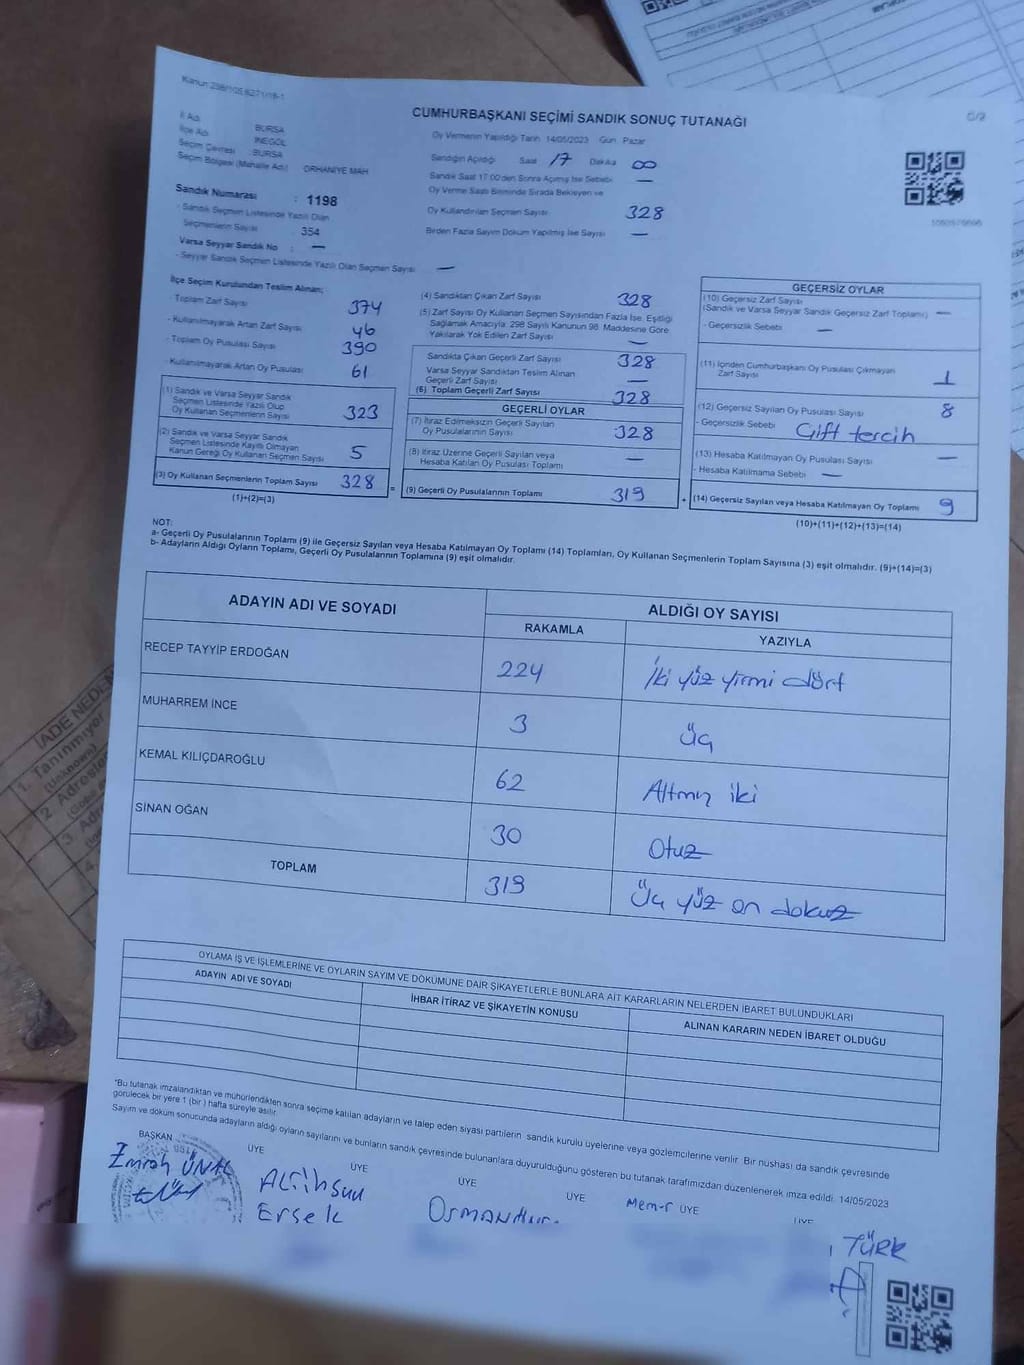 Kanun 298/105 6271/18-1
CUMHURBAŞKANI SEÇİMİ SANDIK SONUÇ TUTANAĞI
İl Adı : BURSA
İlçe Adı : İNEGÖL
Seçim Çevresi : BURSA
Seçim Bölgesi (Mahalle Adı) : ORHANİYE MAH
Oy Vermenin Yapıldığı Tarih 14/05/2023 Gün Pazar
Sandığın Açıldığı Saat 17 Dakika 00
Sandık Saat 17:00'den Sonra Açılmış İse Sebebi —
Oy Verme Saati Bitiminde Sırada Bekleyen ve
Oy Kullandırılan Seçmen Sayısı 328
Birden Fazla Sayım Döküm Yapılmış İse Sayısı —
Sandık Numarası : 1198
- Sandık Seçmen Listesinde Yazılı Olan
Seçmenlerin Sayısı : 354
Varsa Seyyar Sandık No : —
- Seyyar Sandık Seçmen Listesinde Yazılı Olan Seçmen Sayısı —
İlçe Seçim Kurulundan Teslim Alınan;
- Toplam Zarf Sayısı 374
- Kullanılmayarak Artan Zarf Sayısı 46
- Toplam Oy Pusulası Sayısı 390
- Kullanılmayarak Artan Oy Pusulası 61
(1) Sandık ve Varsa Seyyar Sandık
Seçmen Listesinde Yazılı Olup
Oy Kullanan Seçmenlerin Sayısı 323
(2) Sandık ve Varsa Seyyar Sandık
Seçmen Listesinde Kayıtlı Olmayan
Kanun Gereği Oy Kullanan Seçmen Sayısı 5
(3) Oy Kullanan Seçmenlerin Toplam Sayısı 328
(1)+(2)=(3)
=
(4) Sandıktan Çıkan Zarf Sayısı 328
(5) Zarf Sayısı Oy Kullanan Seçmen Sayısından Fazla İse, Eşitliği
Sağlamak Amacıyla; 298 Sayılı Kanunun 98. Maddesine Göre
Yakılarak Yok Edilen Zarf Sayısı —
Sandıkta Çıkan Geçerli Zarf Sayısı 328
Varsa Seyyar Sandıktan Teslim Alınan
Geçerli Zarf Sayısı —
(6) Toplam Geçerli Zarf Sayısı 328
GEÇERLİ OYLAR
(7) İtiraz Edilmeksizin Geçerli Sayılan
Oy Pusulalarının Sayısı 328
(8) İtiraz Üzerine Geçerli Sayılan veya
Hesaba Katılan Oy Pusulası Toplamı —
(9) Geçerli Oy Pusulalarının Toplamı 319
+
GEÇERSİZ OYLAR
(10) Geçersiz Zarf Sayısı
(Sandık ve Varsa Seyyar Sandık Geçersiz Zarf Toplamı) —
- Geçersizlik Sebebi —
(11) İçinden Cumhurbaşkanı Oy Pusulası Çıkmayan
Zarf Sayısı 1
(12) Geçersiz Sayılan Oy Pusulası Sayısı 8
- Geçersizlik Sebebi Çift tercih
(13) Hesaba Katılmayan Oy Pusulası Sayısı —
- Hesaba Katılmama Sebebi —
(14) Geçersiz Sayılan veya Hesaba Katılmayan Oy Toplamı 9
(10)+(11)+(12)+(13)=(14)
NOT:
a- Geçerli Oy Pusulalarının Toplamı (9) ile Geçersiz Sayılan veya Hesaba Katılmayan Oy Toplamı (14) Toplamları, Oy Kullanan Seçmenlerin Toplam Sayısına (3) eşit olmalıdır. (9)+(14)=(3)
b- Adayların Aldığı Oyların Toplamı, Geçerli Oy Pusulalarının Toplamına (9) eşit olmalıdır.
ADAYIN ADI VE SOYADI
ALDIĞI OY SAYISI
RAKAMLA YAZIYLA
RECEP TAYYİP ERDOĞAN 224 İki yüz yirmi dört
MUHARREM İNCE 3 Üç
KEMAL KILIÇDAROĞLU 62 Altmış iki
SİNAN OĞAN 30 Otuz
TOPLAM 319 Üç yüz on dokuz
OYLAMA İŞ VE İŞLEMLERİNE VE OYLARIN SAYIM VE DÖKÜMÜNE DAİR ŞİKAYETLERLE BUNLARA AİT KARARLARIN NELERDEN İBARET BULUNDUKLARI
ADAYIN ADI VE SOYADI
İHBAR İTİRAZ VE ŞİKAYETİN KONUSU
ALINAN KARARIN NEDEN İBARET OLDUĞU
*Bu tutanak imzalandıktan ve mühürlendikten sonra seçime katılan adayların ve talep eden siyasi partilerin sandık kurulu üyelerine veya gözlemcilerine verilir. Bir nushası da sandık çevresinde
görülecek bir yere 1 (bir ) hafta süreyle asılır.
Sayım ve döküm sonucunda adayların aldığı oyların sayılarını ve bunların sandık çevresinde bulunanlara duyurulduğunu gösteren bu tutanak tarafımızdan düzenlenerek imza edildi. 14/05/2023
BAŞKAN ÜYE ÜYE ÜYE ÜYE ÜYE ÜYE
Emrah ÜNAL
Alfihsun
Ersek
Memur
TÜRK
İADE NEDEN
1. Tanınmıyor
(Unknown)
2. Adres
3. Adr
4.